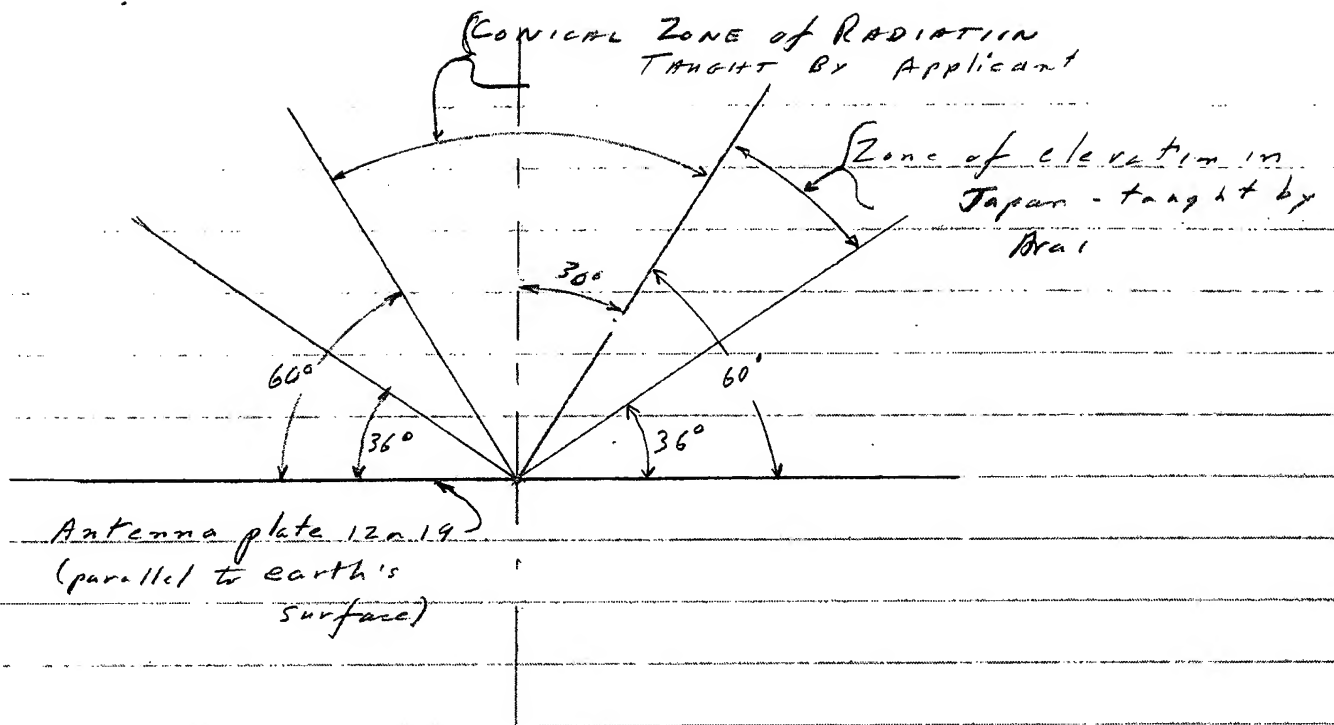 CONICAL ZONE of RADIATION
TAUGHT By Applicant
Zone of elevation in
Japan - taught by
Arai
30°
60°
60°
36°
36°
Antenna plate 12 or 14
(parallel to earth's
surface)